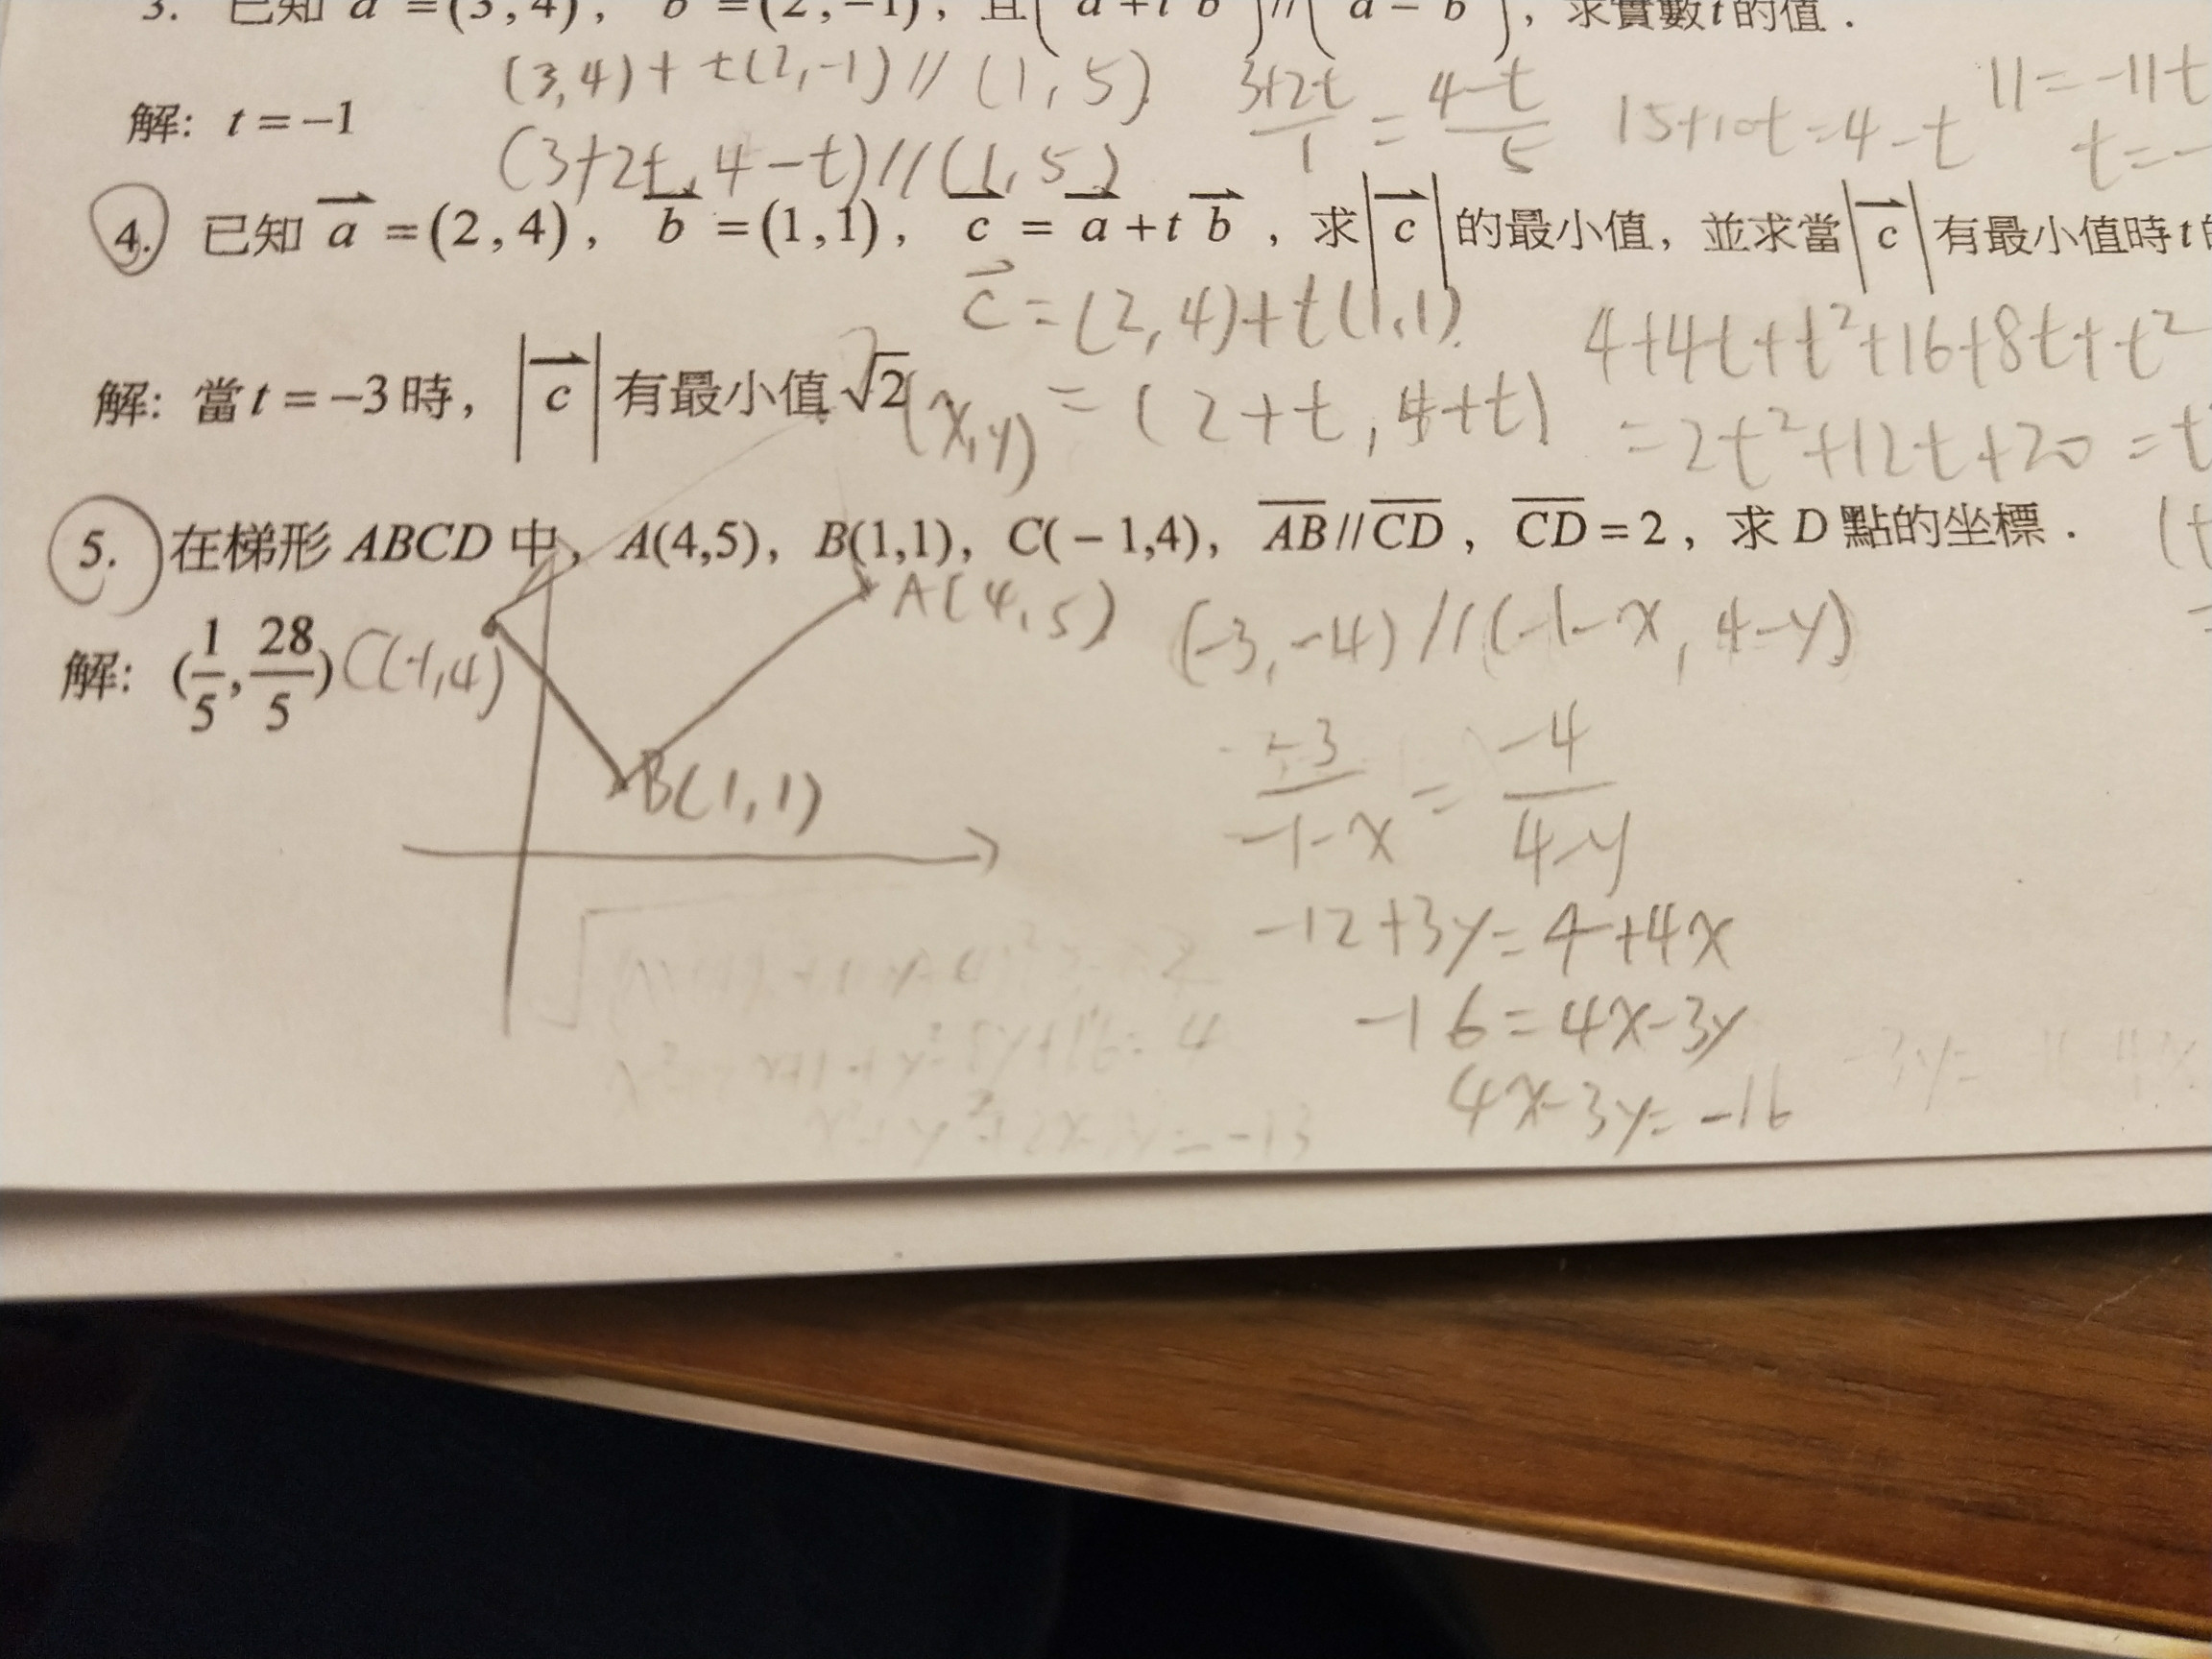 3. 已知 a =(3,4), b =(2,-1), 且(a+t b)//(a-b), 求實數t的值.
(3,4)+t(2,-1)//(1,5)
3+2t/1 = 4-t/5
15+10t=4-t
11=-11t
解: t=-1
(3+2t,4-t)//(1,5)
t=-
4. 已知 a =(2,4), b =(1,1), c = a +t b, 求| c |的最小值, 並求當| c |有最小值時t
c =(2,4)+t(1,1)
4+4t+t²+16+8t+t²
解: 當t=-3時, | c |有最小值√2
(x,y) =(2+t,4+t)
=2t²+12t+20=t
5. 在梯形ABCD中, A(4,5), B(1,1), C(-1,4), AB//CD, CD=2, 求D點的坐標.
A(4,5)
(-3,-4)//(-1-x,4-y)
解: (1/5, 28/5)
C(-1,4)
B(1,1)
-3/-1-x = -4/4-y
-12+3y=4+4x
-16=4x-3y
4x-3y=-16